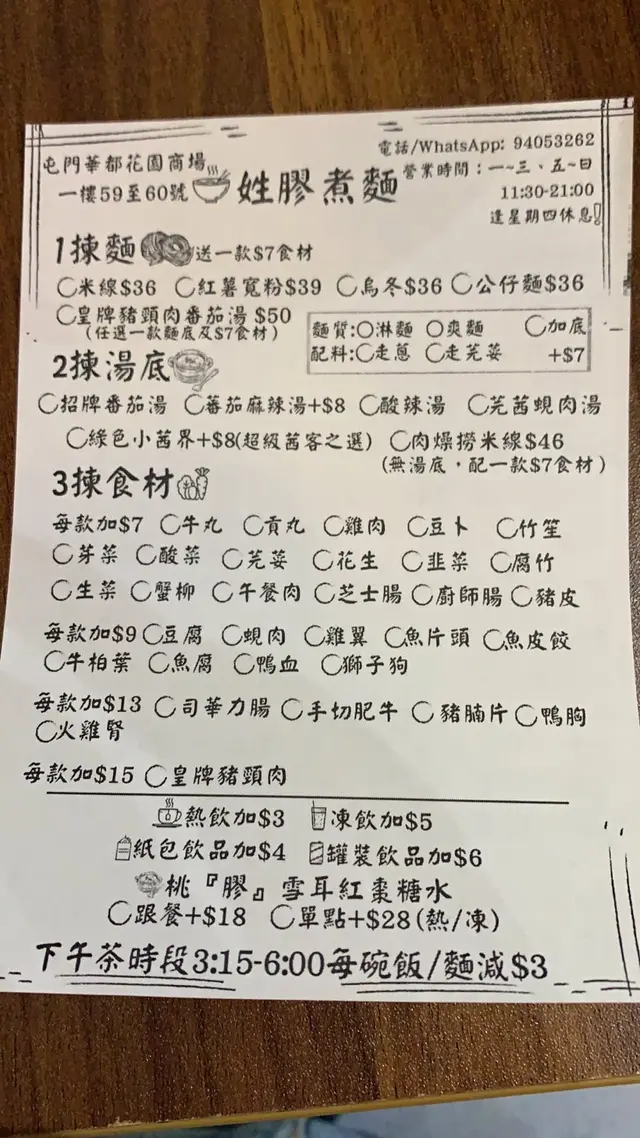 屯門華都花園商場
一樓59至60號
姓膠煮麵
電話/WhatsApp: 94053262
營業時間：一~三、五~日
11:30-21:00
逢星期四休息!
1揀麵 送一款$7食材
米線$36 紅薯寬粉$39 烏冬$36 公仔麵$36
皇牌豬頸肉番茄湯 $50
(任選一款麵底及$7食材)
麵質:淋麵 爽麵 加底
配料:走蔥 走芫荽 +$7
2揀湯底
招牌番茄湯 蕃茄麻辣湯+$8 酸辣湯 芫茜蜆肉湯
綠色小茜界+$8(超級茜客之選) 肉燥撈米線$46
(無湯底，配一款$7食材)
3揀食材
每款加$7 牛丸 貢丸 雞肉 豆卜 竹笙
芽菜 酸菜 芫荽 花生 韭菜 腐竹
生菜 蟹柳 午餐肉 芝士腸 廚師腸 豬皮
每款加$9 豆腐 蜆肉 雞翼 魚片頭 魚皮餃
牛柏葉 魚腐 鴨血 獅子狗
每款加$13 司華力腸 手切肥牛 豬腩片 鴨胸
火雞腎
每款加$15 皇牌豬頸肉
熱飲加$3 凍飲加$5
紙包飲品加$4 罐裝飲品加$6
桃『膠』雪耳紅棗糖水
跟餐+$18 單點+$28(熱/凍)
下午茶時段3:15-6:00每碗飯/麵減$3